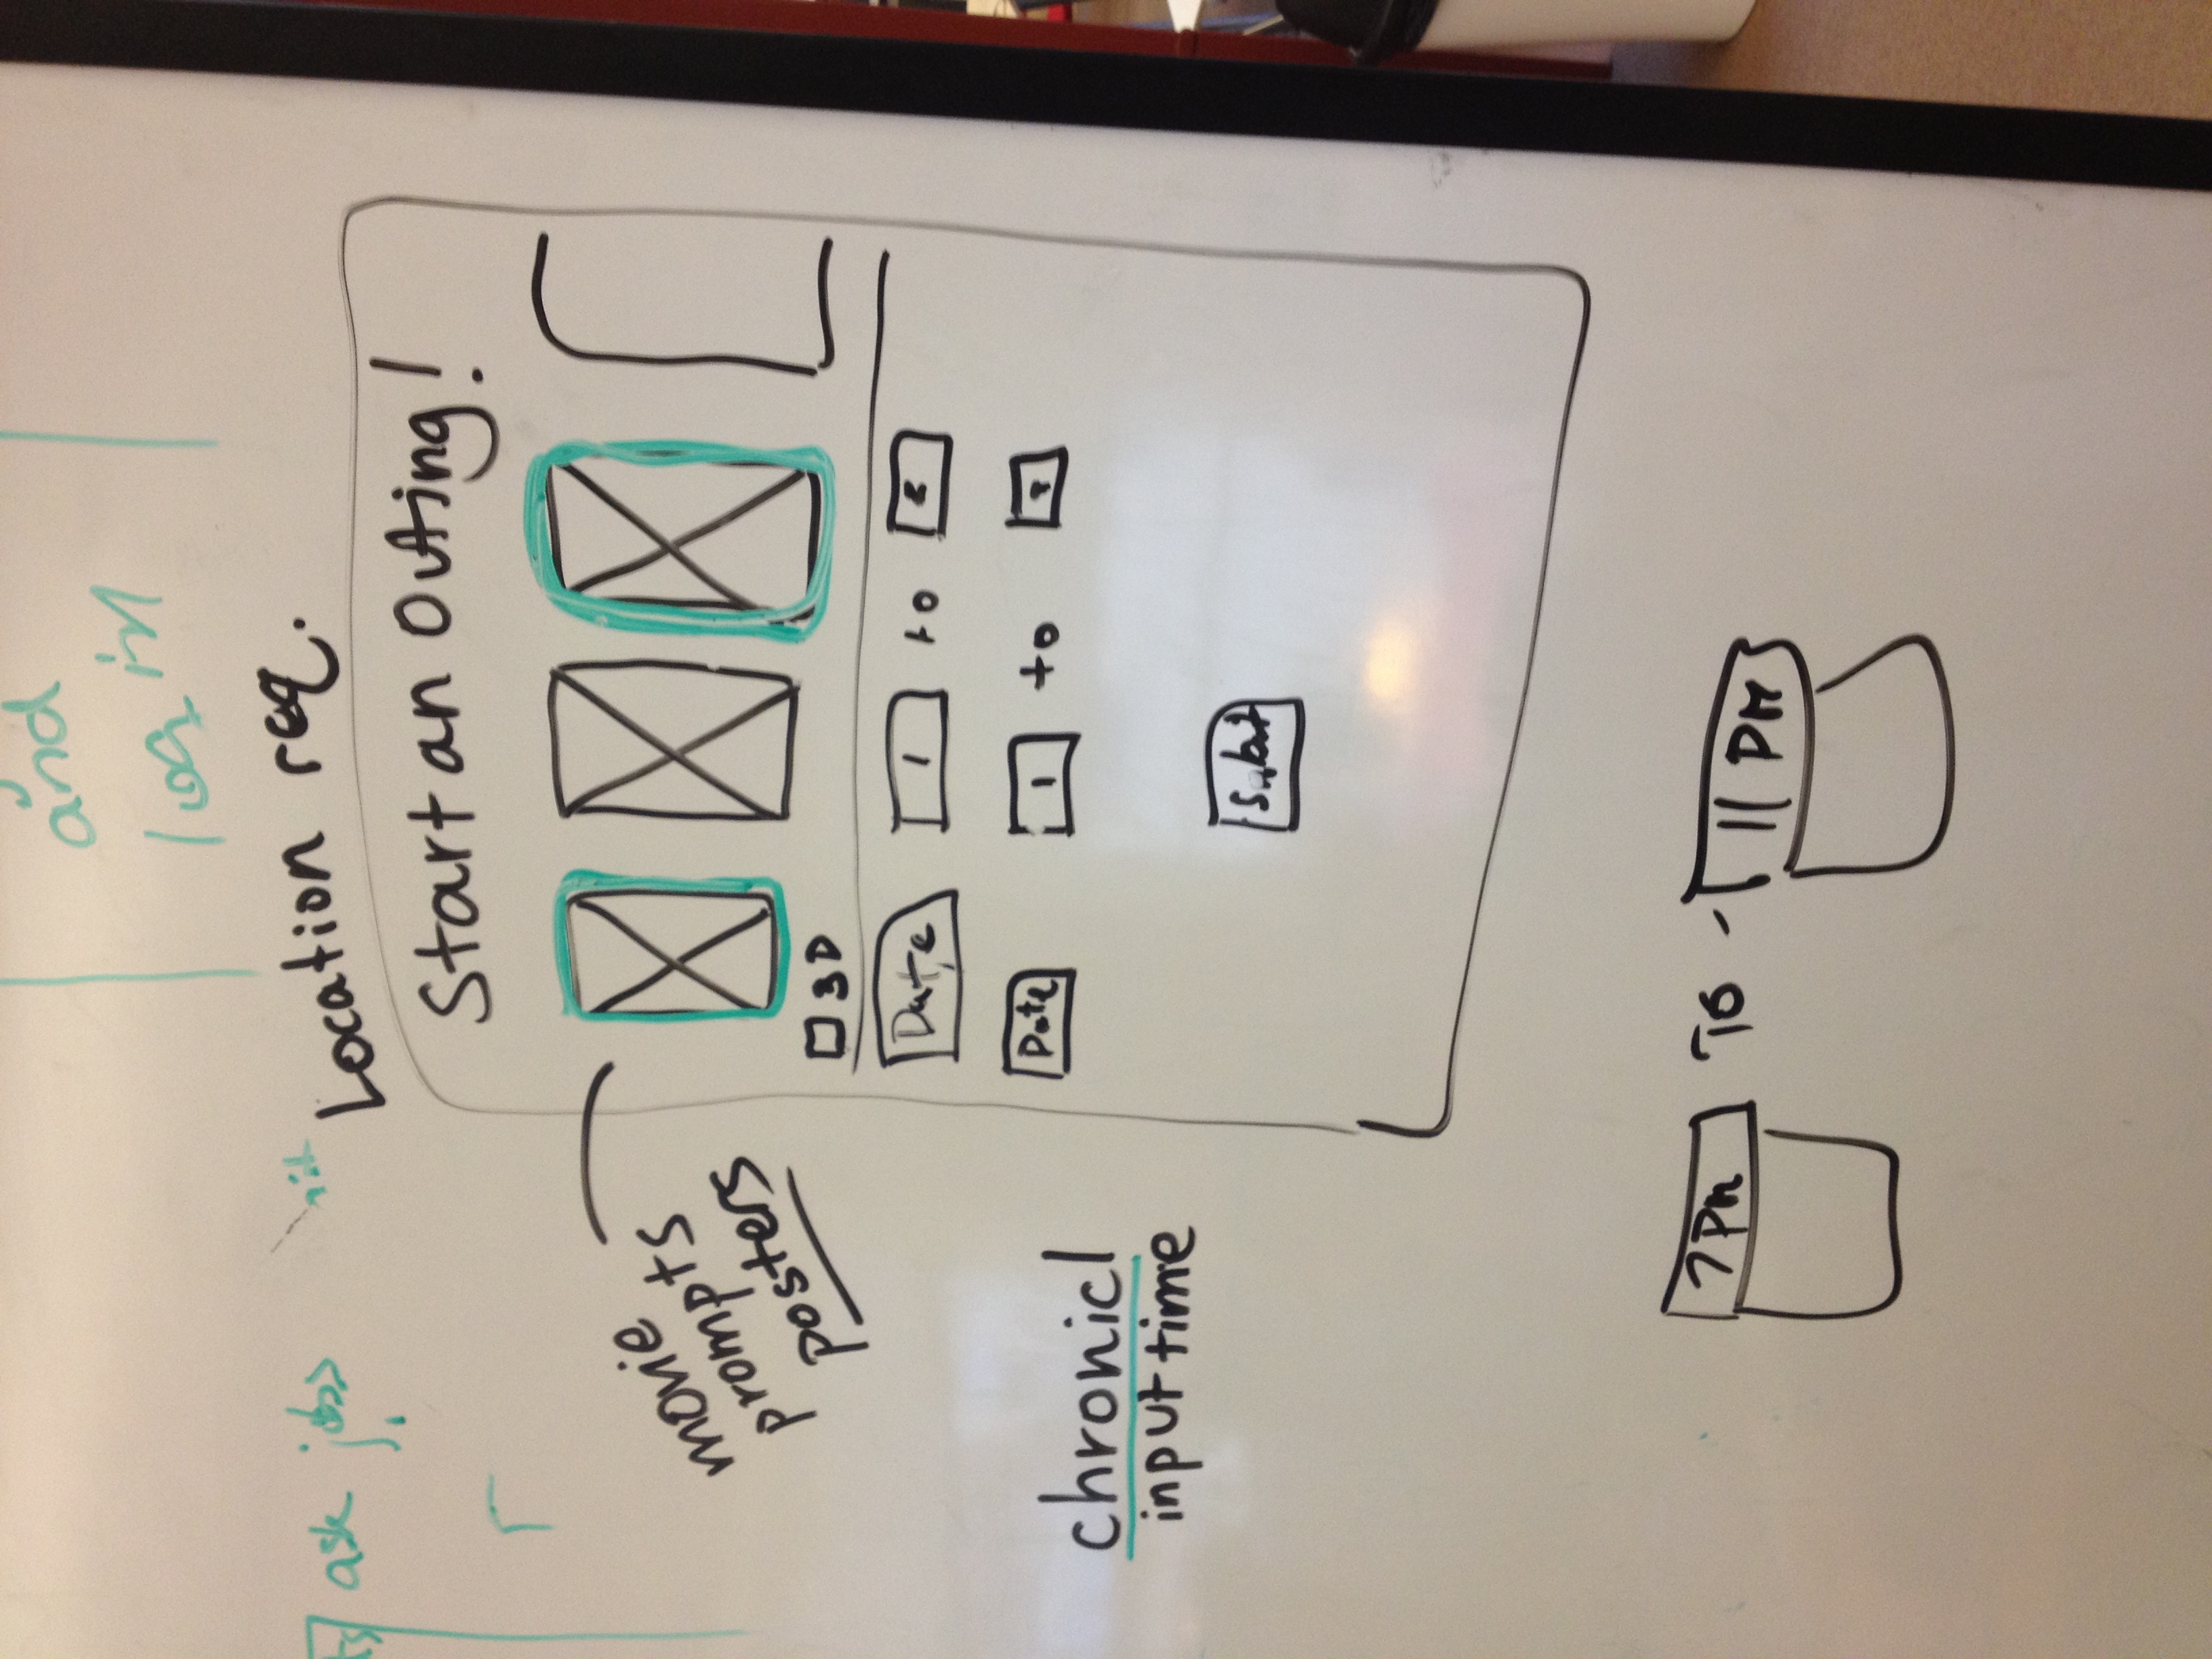 and
log in
ask jobs
Location req.
Start an Outing!
movie
prompts
posters
3D
Date 1 to
Date 1 to
chronicl
input time
7 PM TO 11 PM